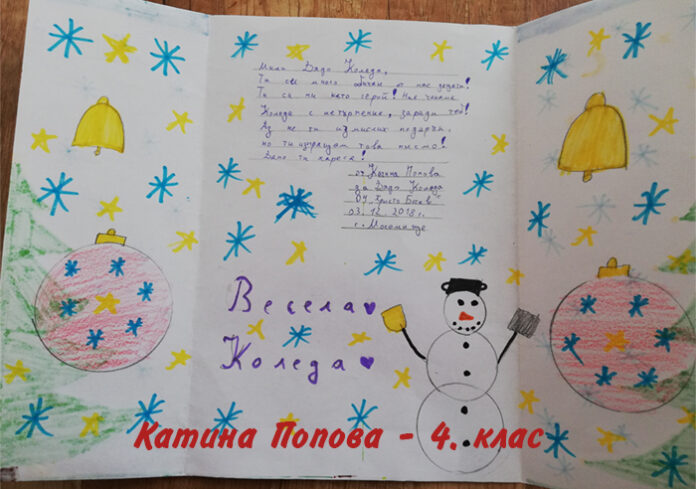 Мили Дядо Коледа,
Ти си много обичан от нас децата!
Ти си ми като герой! Ние чакаме
Коледа с нетърпение, заради теб!
Аз не ти измислих подарък,
но ти изпращам това писмо!
Дано ти хареса!
от Катина Попова
за Дядо Коледа
ОУ „Христо Ботев"
03.12.2018 г.
с.
Весела
Коледа
Катина Попова - 4. клас